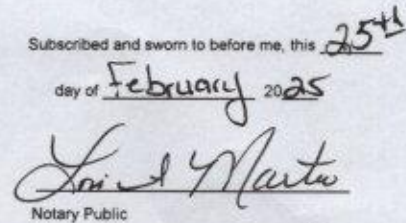 Subscribed and sworn to before me, this 25th
day of February 2025
Lori A Martin
Notary Public